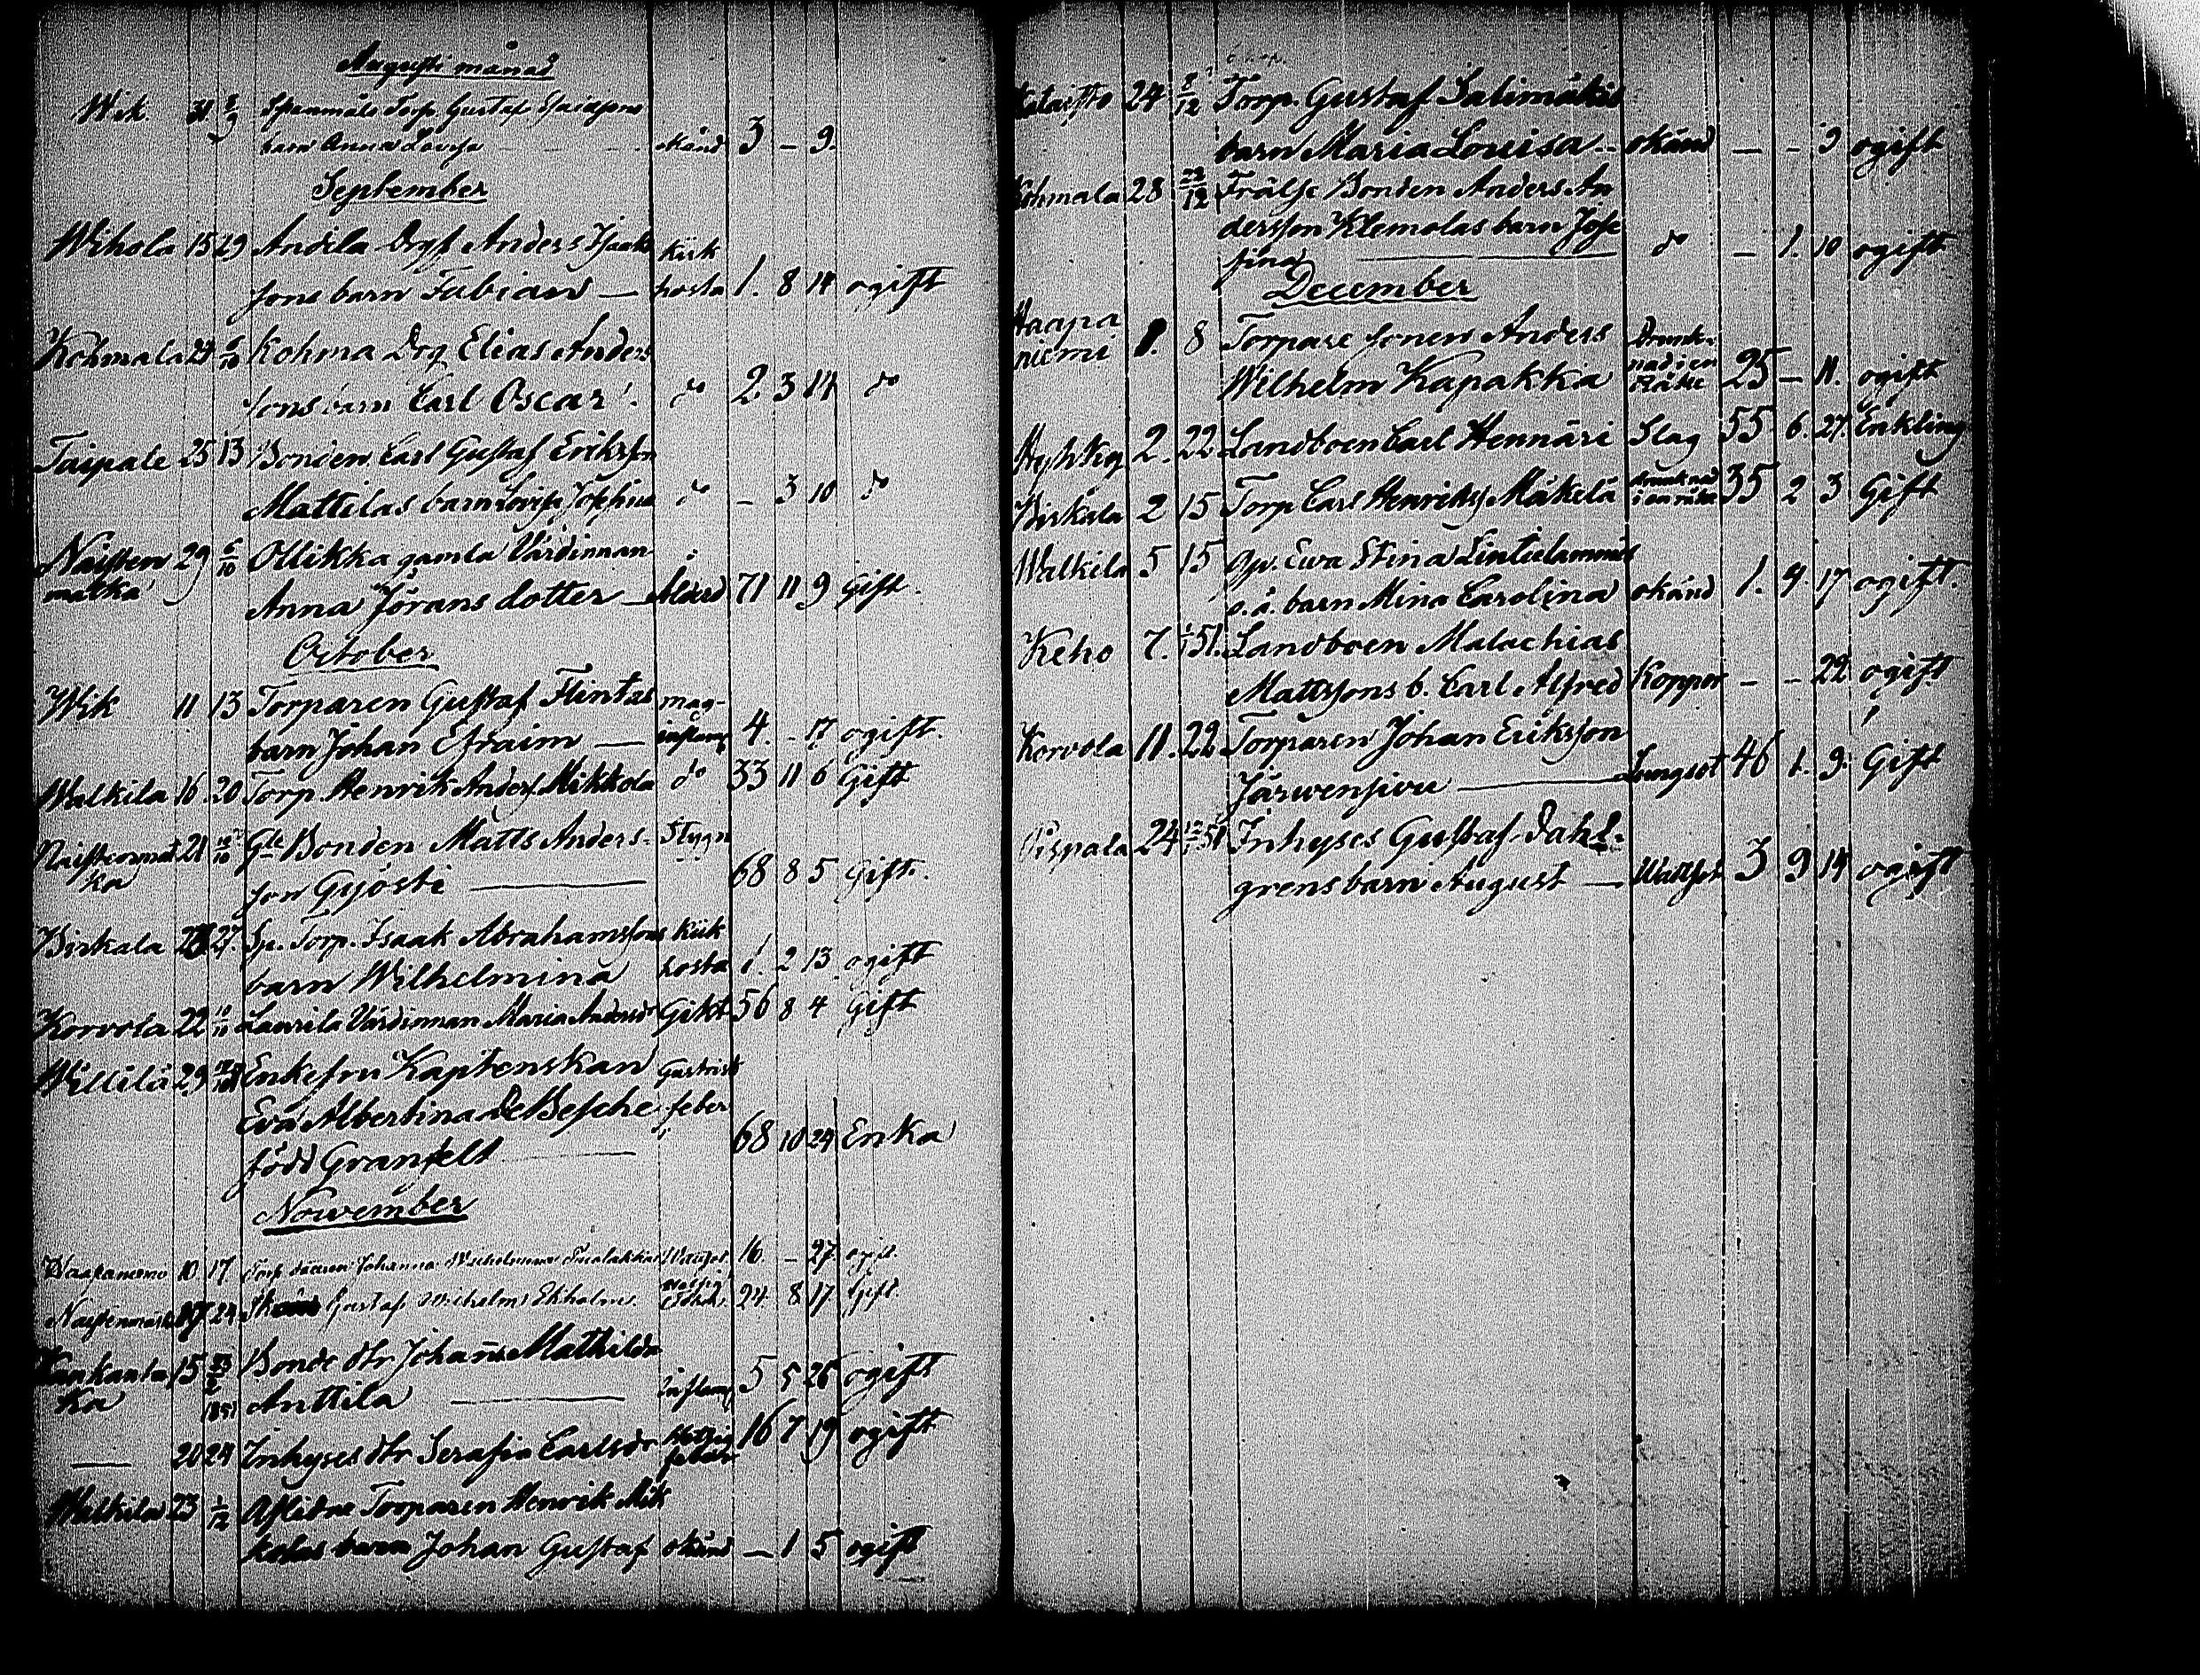 Augusti månad
Wik. 31 8/9 Torp. Gustaf Esaiassons
barn Anna Lovisa okänd 3 – 9.
September
Wihola 15 19 Andila Dgf Anders Isaaks Kik
sons barn Fabian — hosta 1. 8 14 ogift
Kohmala 29 6/10 Kohma Drg Elias Anders
sons barn Carl Oscar. do 2 3 14 do
Taipale 25 13 Bonden Carl Gustaf Eriksson
Mattilas barn Lovisa Josefina do – 3 10 do
Naisten 29 6/10 Ollikka gamla Värdinnan
matka Anna Jörans dotter — Ålderd 71 11 9 Gift.
October
Wik 11 13 Torparen Gustaf Flintas mag-
barn Johan Efraim — inflam 4. – 17 ogift.
Walkila 16 20 Torp. Henrik Anders. Mikkola do 33 11 6 Gift
Naistenmat 21 Gle Bonden Matts Anders- Stygn
ka son Gyösti — 68 8 5 Gift.
Birkala 27. Sp. Torp. Isaak Abrahamssons Kik
barn Wilhelmina hosta 1. 2 13 ogift
Korvola 22 Laurila Värdinnan Maria Andersd Gikt 56 8 4 Gift
Willilä 29 Enkefru Kaptenskan Gastrisk
Eva Albertina De Besche feber
född Granfelt 68 10 24 Enka
November
10 17 Torp. Johanna Wilhelmina Wattsot 16. – 27 ogift.
24 Gustaf Wilhelm Ekholm. 24. 8 17 Gift.
Kankanta 15 Bonde dtr Johanna Mathilda
ka 1851 Anttila — Inflam 5 5 26 ogift
— 20 24 Inhyses dtr Serafia Carlsdr feber 16 7 19 ogift
Walkila 23 1/12 Aflidne Torparen Henrik Mik
kolas barn Johan Gustaf okänd — 1 5 ogift
24 8/12 Torp. Gustaf Salimäkis
barn Maria Louisa — okänd — – 9 ogift
Kohmala 28 22/12 Frälse Bonden Anders An
dersson Klemolas barn Jose
fina — do – 1. 10 ogift
December
Haapa
niemi 1. 8 Torpare sonen Anders Drunk-
Wilhelm Kapakka nad i en Råke 25 – 11. ogift
Hyhky 2. 22 Landboen Carl Hennäri Slag 55 6. 27. Enkling
Birkala 2 15 Torp Carl Henriks. Mäkelä drunknad i en råke 35 2 3 Gift
Walkila 5 15 Gp. Ewa Stina Lintulammis
o.ä. barn Mina Carolina okänd 1. 4. 17 ogift.
Keho 7. 1/1 51. Landboen Malachias
Mattssons b. Carl Alfred Koppor – – 22 ogift
Korvola 11. 22 Torparen Johan Eriksson
Järwensivu — Lungsot 46 1. 9. Gift
Pispala 24 12/1 51 Inhyses Gustaf Dahl-
grens barn August — Wattsot 3 9 14 ogift